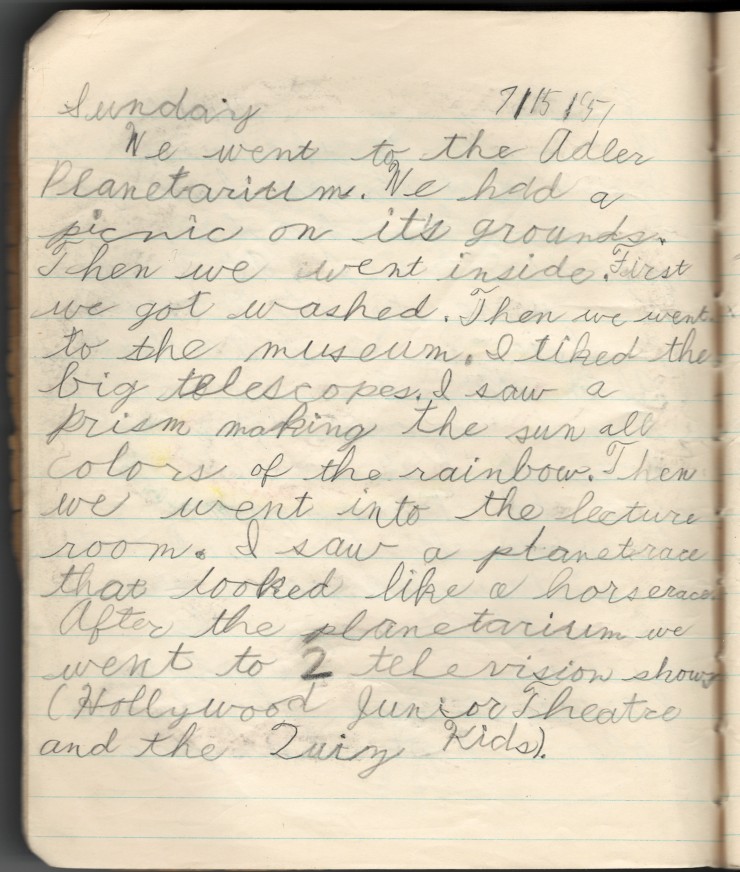 Sunday 7/15/51
We went to the Adler
Planetarium. We had a
picnic on it's grounds.
Then we went inside. First
we got washed. Then we went
to the museum. I liked the
big telescopes. I saw a
prism making the sun all
colors of the rainbow. Then
we went into the lecture
room. I saw a planetrace
that looked like a horserace.
After the planetarium we
went to 2 television shows
(Hollywood Junior Theatre
and the Quizy Kids).